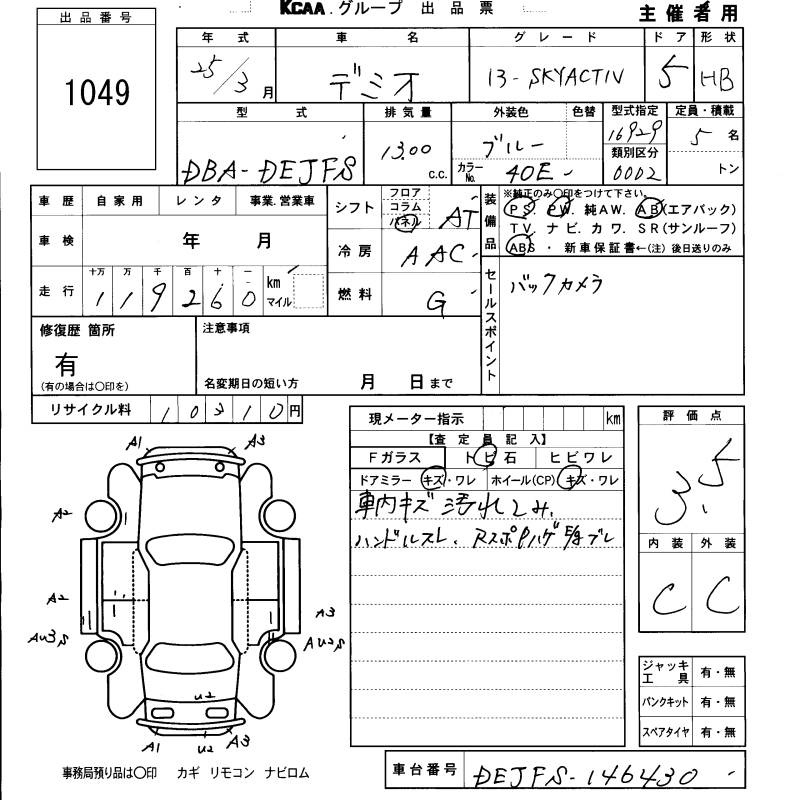 KCAA.グループ 出品票
主催者用
出品番号
1049
年式 車名 グレード ドア 形状
25/3月 デミオ 13-SKYACTIV 5 HB
型式 排気量 外装色 色替 型式指定 定員・積載
DBA-DEJFS 1300 c.c. ブルー 16929 5名
カラーNo. 40E 類別区分 0002 トン
車歴 自家用 レンタ 事業.営業車
シフト フロア コラム パネル AT
車検 年 月
冷房 AAC
走行 十万 万 千 百 十 一
1 1 9 2 6 0 km マイル
燃料 G
装備品
※純正のみ〇印をつけて下さい。
PS. PW. 純AW. AB(エアバック)
TV. ナビ. カワ. SR(サンルーフ)
ABS ・ 新車保証書←(注) 後日送りのみ
セールスポイント
バックカメラ
修復歴 箇所
有
(有の場合は〇印を)
注意事項
名変期日の短い方 月 日まで
リサイクル料 10310円
現メーター指示 km
【査定員記入】
Fガラス トビ石 ヒビワレ
ドアミラー キズ・ワレ ホイール(CP) キズ・ワレ
車内キズ汚れしみ.
ハンドルスレ.
評価点
3.5
内装 外装
C C
A1 A3
A2
A2
A3
U2
A1 U2 A3
ジャッキ工具 有・無
パンクキット 有・無
スペアタイヤ 有・無
事務局預り品は〇印 カギ リモコン ナビロム
車台番号 DEJFS-146430